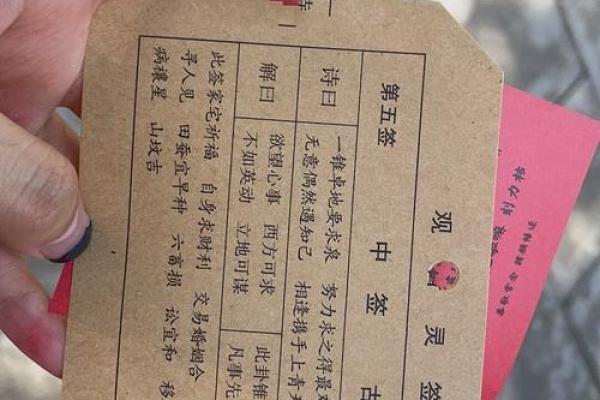 观音灵签
第五签 中签 古
诗曰
一锥卓地要求泉 努力求之得最
无意偶然遇知己 相逢携手上青
解曰
欲望心事 西方可求
不如英动 立地可谋
此卦锥
凡事先
此签家宅祈福 自身求财利 交易婚姻合
寻人见 田蚕宜早种 六畜损 讼宜和 移
病禳星 山坟吉